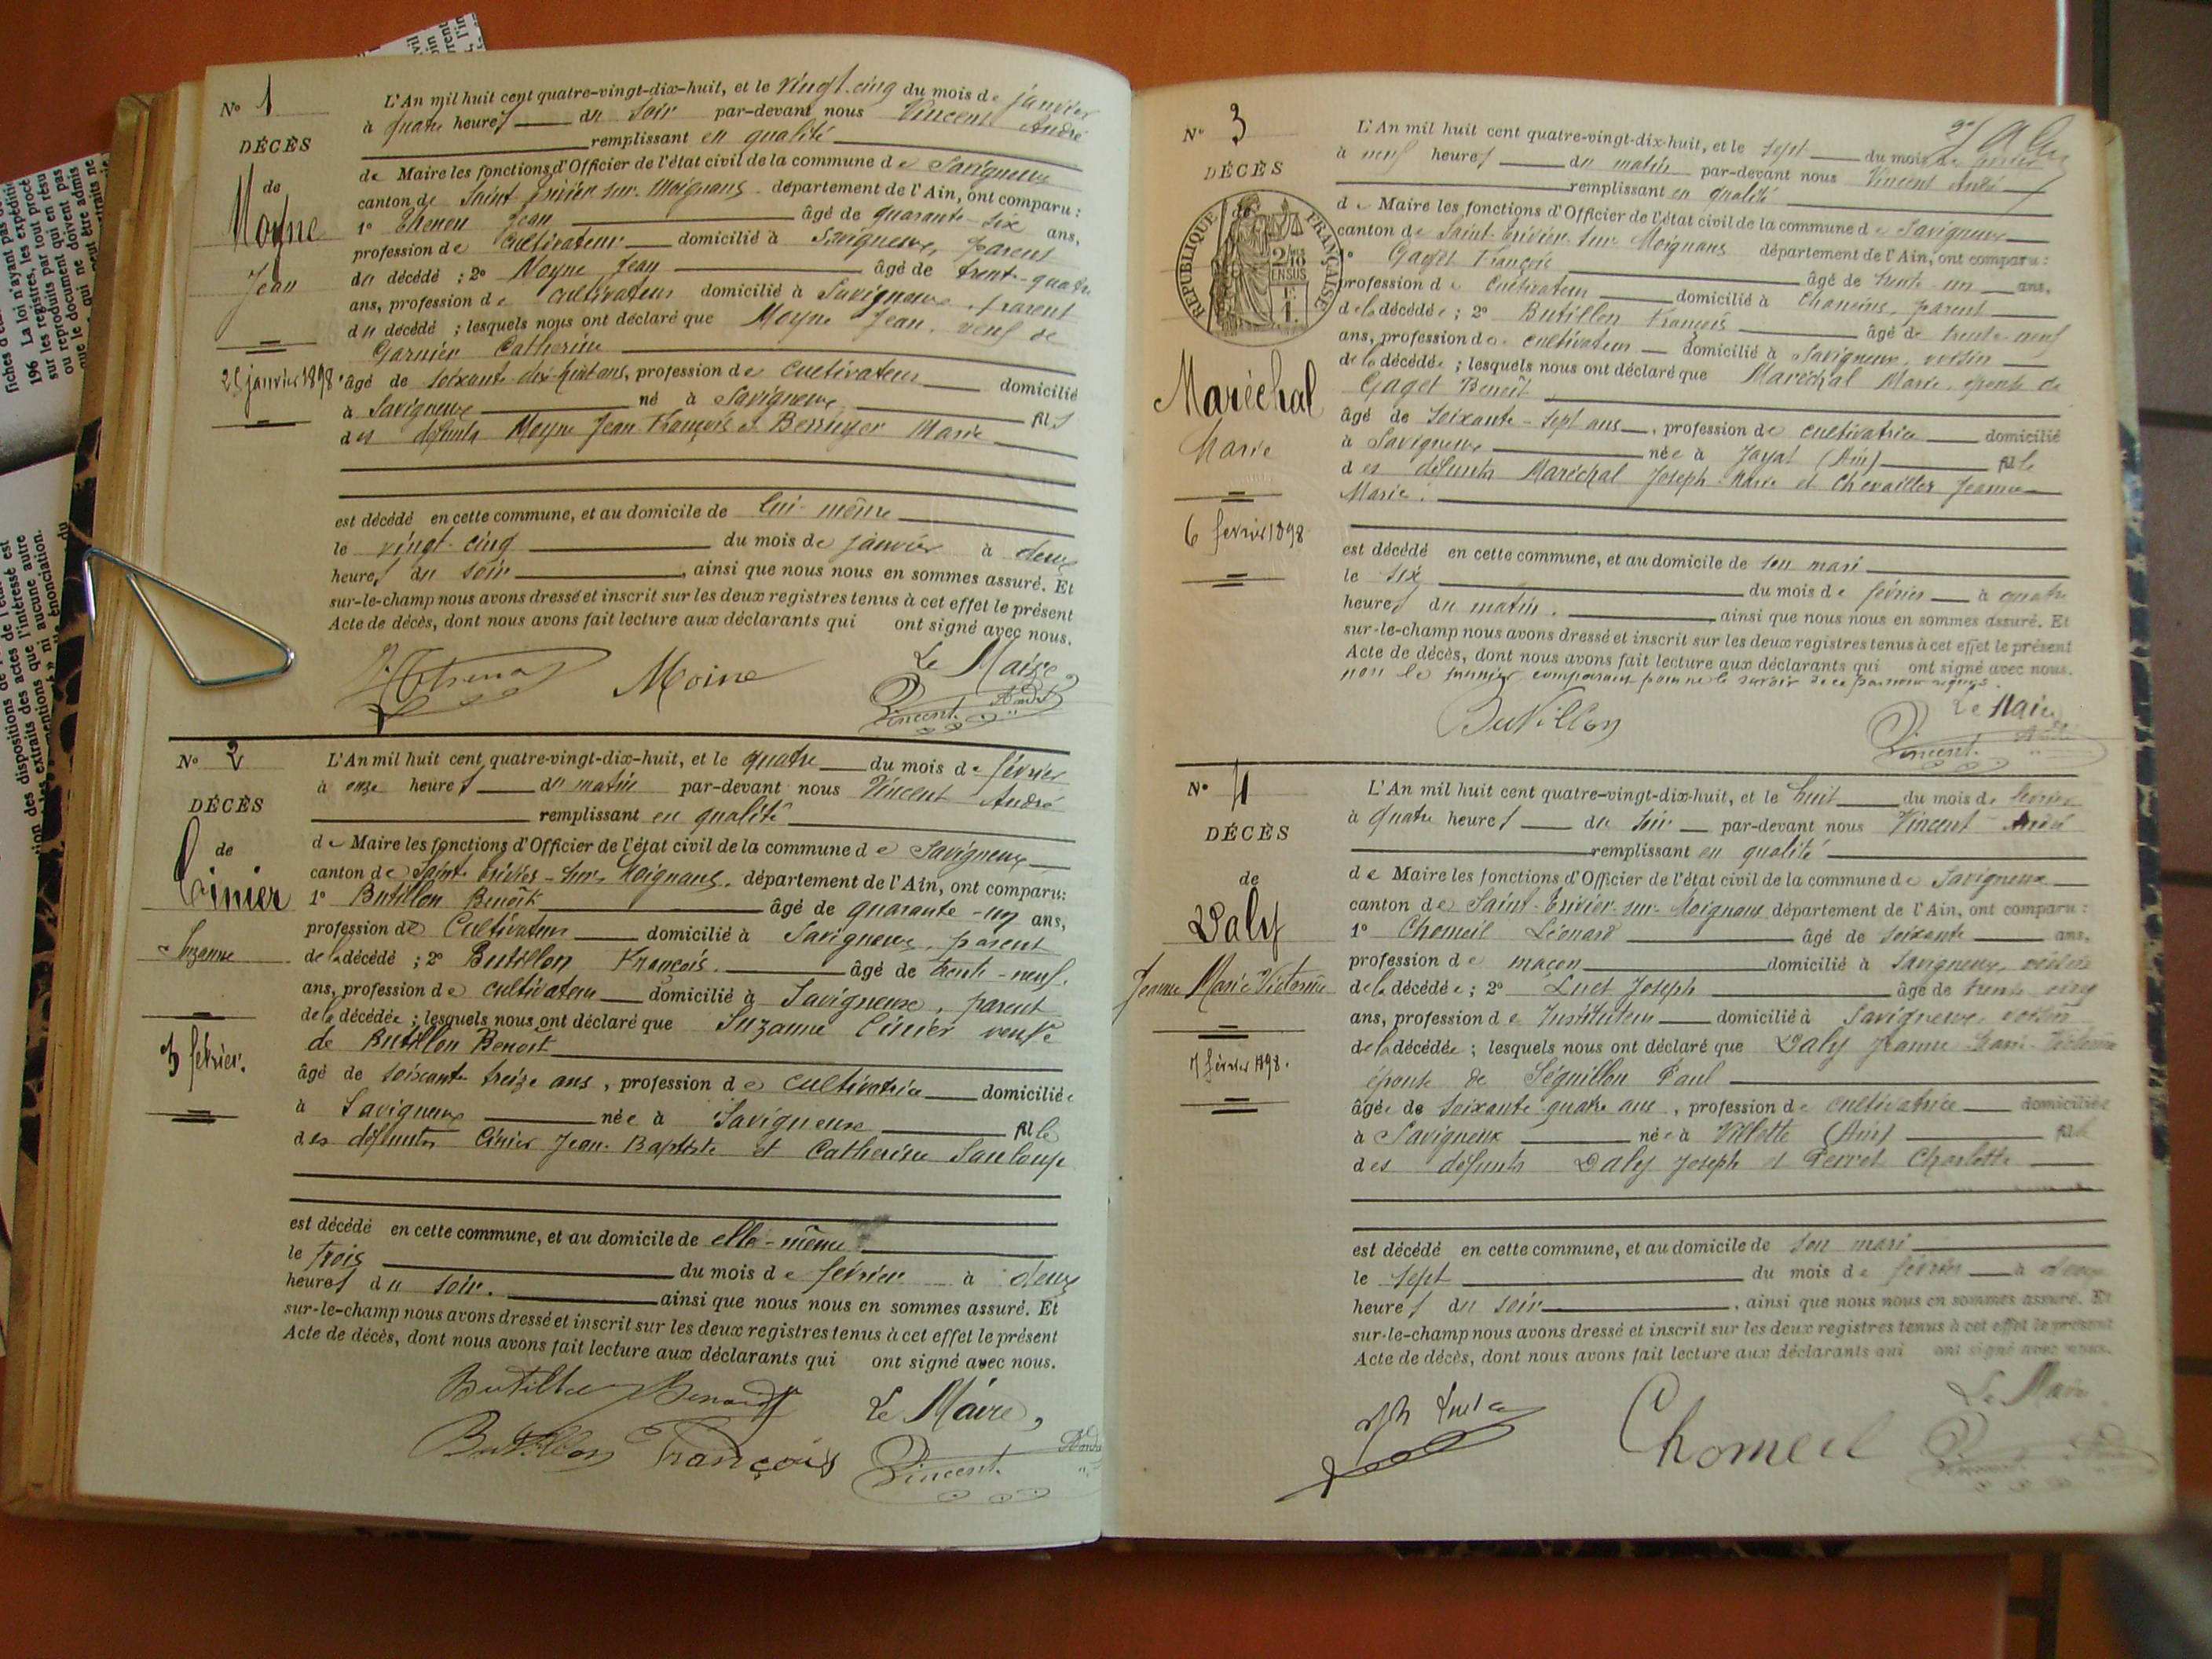 N° 1
DÉCÈS
de
Moyne
Jean
25 janvier 1898
L'An mil huit cent quatre-vingt-dix-huit, et le vingt-cinq du mois de janvier
à quatre heures du soir par-devant nous Vincent André
remplissant en qualité
de Maire les fonctions d'Officier de l'état civil de la commune de Savigneux
canton de Saint Trivier sur Moignans département de l'Ain, ont comparu :
1° Thenon Jean âgé de quarante-six ans,
profession de cultivateur domicilié à Savigneux, parent
du décédé ; 2° Moyne Jean âgé de trente-quatre
ans, profession de cultivateur domicilié à Savigneux, parent
du décédé ; lesquels nous ont déclaré que Moyne Jean, veuf de
Garnier Catherine
âgé de soixante-dix-huit ans, profession de cultivateur domicilié
à Savigneux né à Savigneux fils
des défunts Moyne Jean François et Marie
est décédé en cette commune, et au domicile de lui-même
le vingt-cinq du mois de janvier à deux
heures du soir, ainsi que nous nous en sommes assuré. Et
sur-le-champ nous avons dressé et inscrit sur les deux registres tenus à cet effet le présent
Acte de décès, dont nous avons fait lecture aux déclarants qui ont signé avec nous.
Moine Le Maire,
Vincent André
N° 2
DÉCÈS
de
Cinier
Suzanne
3 février.
L'An mil huit cent quatre-vingt-dix-huit, et le quatre du mois de février
à onze heures du matin par-devant nous Vincent André
remplissant en qualité
de Maire les fonctions d'Officier de l'état civil de la commune de Savigneux
canton de Saint-Trivier-sur-Moignans, département de l'Ain, ont comparu:
1° Butillon Benoît âgé de quarante-un ans,
profession de Cultivateur domicilié à Savigneux, parent
de la décédé ; 2° Butillon François. âgé de trente-neuf.
ans, profession de cultivateur domicilié à Savigneux, parent
de la décédée ; lesquels nous ont déclaré que Suzanne Cinier veuve
de Butillon Benoit
âgé de soixante treize ans, profession de cultivatrice domiciliée
à Savigneux née à Savigneux fille
des défunts Cinier Jean-Baptiste et Catherine Sanloup
est décédé en cette commune, et au domicile de elle-même
le trois du mois de février à deux
heures du soir. ainsi que nous nous en sommes assuré. Et
sur-le-champ nous avons dressé et inscrit sur les deux registres tenus à cet effet le présent
Acte de décès, dont nous avons fait lecture aux déclarants qui ont signé avec nous.
Butillon Benoit Le Maire,
Butillon François Vincent André
N° 3
DÉCÈS
de
RÉPUBLIQUE FRANÇAISE
Maréchal
Marie
6 fevrier 1898
L'An mil huit cent quatre-vingt-dix-huit, et le sept du mois de février
à neuf heures du matin par-devant nous Vincent André
remplissant en qualité
de Maire les fonctions d'Officier de l'état civil de la commune de Savigneux
canton de Saint-Trivier-sur-Moignans département de l'Ain, ont comparu :
1° Gaget François âgé de trente-un ans,
profession de Cultivateur domicilié à Chaneins, parent
de la décédée ; 2° Butillon François âgé de trente-neuf
ans, profession de cultivateur domicilié à Savigneux, voisin
de la décédée ; lesquels nous ont déclaré que Maréchal Marie, épouse de
Gaget Benoît
âgé de soixante-sept ans, profession de cultivatrice domicilié
à Savigneux née à Jayat (Ain) fille
des défunts Maréchal Joseph-Marie et Chevailler Jeanne
Marie.
est décédé en cette commune, et au domicile de son mari
le six du mois de février à quatre
heures du matin. ainsi que nous nous en sommes assuré. Et
sur-le-champ nous avons dressé et inscrit sur les deux registres tenus à cet effet le présent
Acte de décès, dont nous avons fait lecture aux déclarants qui ont signé avec nous.
non le premier comparant pour ne le savoir de ce par nous requis.
Butillon Le Maire
Vincent André
N° 4
DÉCÈS
de
Daly
Jeanne Marie Victorine
7 février 1898.
L'An mil huit cent quatre-vingt-dix-huit, et le huit du mois de février
à quatre heures du soir par-devant nous Vincent André
remplissant en qualité
de Maire les fonctions d'Officier de l'état civil de la commune de Savigneux
canton de Saint-Trivier-sur-Moignans département de l'Ain, ont comparu :
1° Chomeil Léonard âgé de soixante ans,
profession de maçon domicilié à Savigneux, voisin
de la décédée ; 2° Luet Joseph âgé de trente cinq
ans, profession de Instituteur domicilié à Savigneux, voisin
de la décédée ; lesquels nous ont déclaré que Daly Jeanne Marie-Victorine
épouse de Séguillon Paul
âgée de soixante-quatre ans, profession de cultivatrice domiciliée
à Savigneux née à Villette (Ain) fille
des défunts Daly Joseph et Perret Charlotte
est décédé en cette commune, et au domicile de son mari
le sept du mois de février à deux
heures du soir, ainsi que nous nous en sommes assuré. Et
sur-le-champ nous avons dressé et inscrit sur les deux registres tenus à cet effet le présent
Acte de décès, dont nous avons fait lecture aux déclarants qui ont signé avec nous.
Luet Chomeil Le Maire
Vincent André